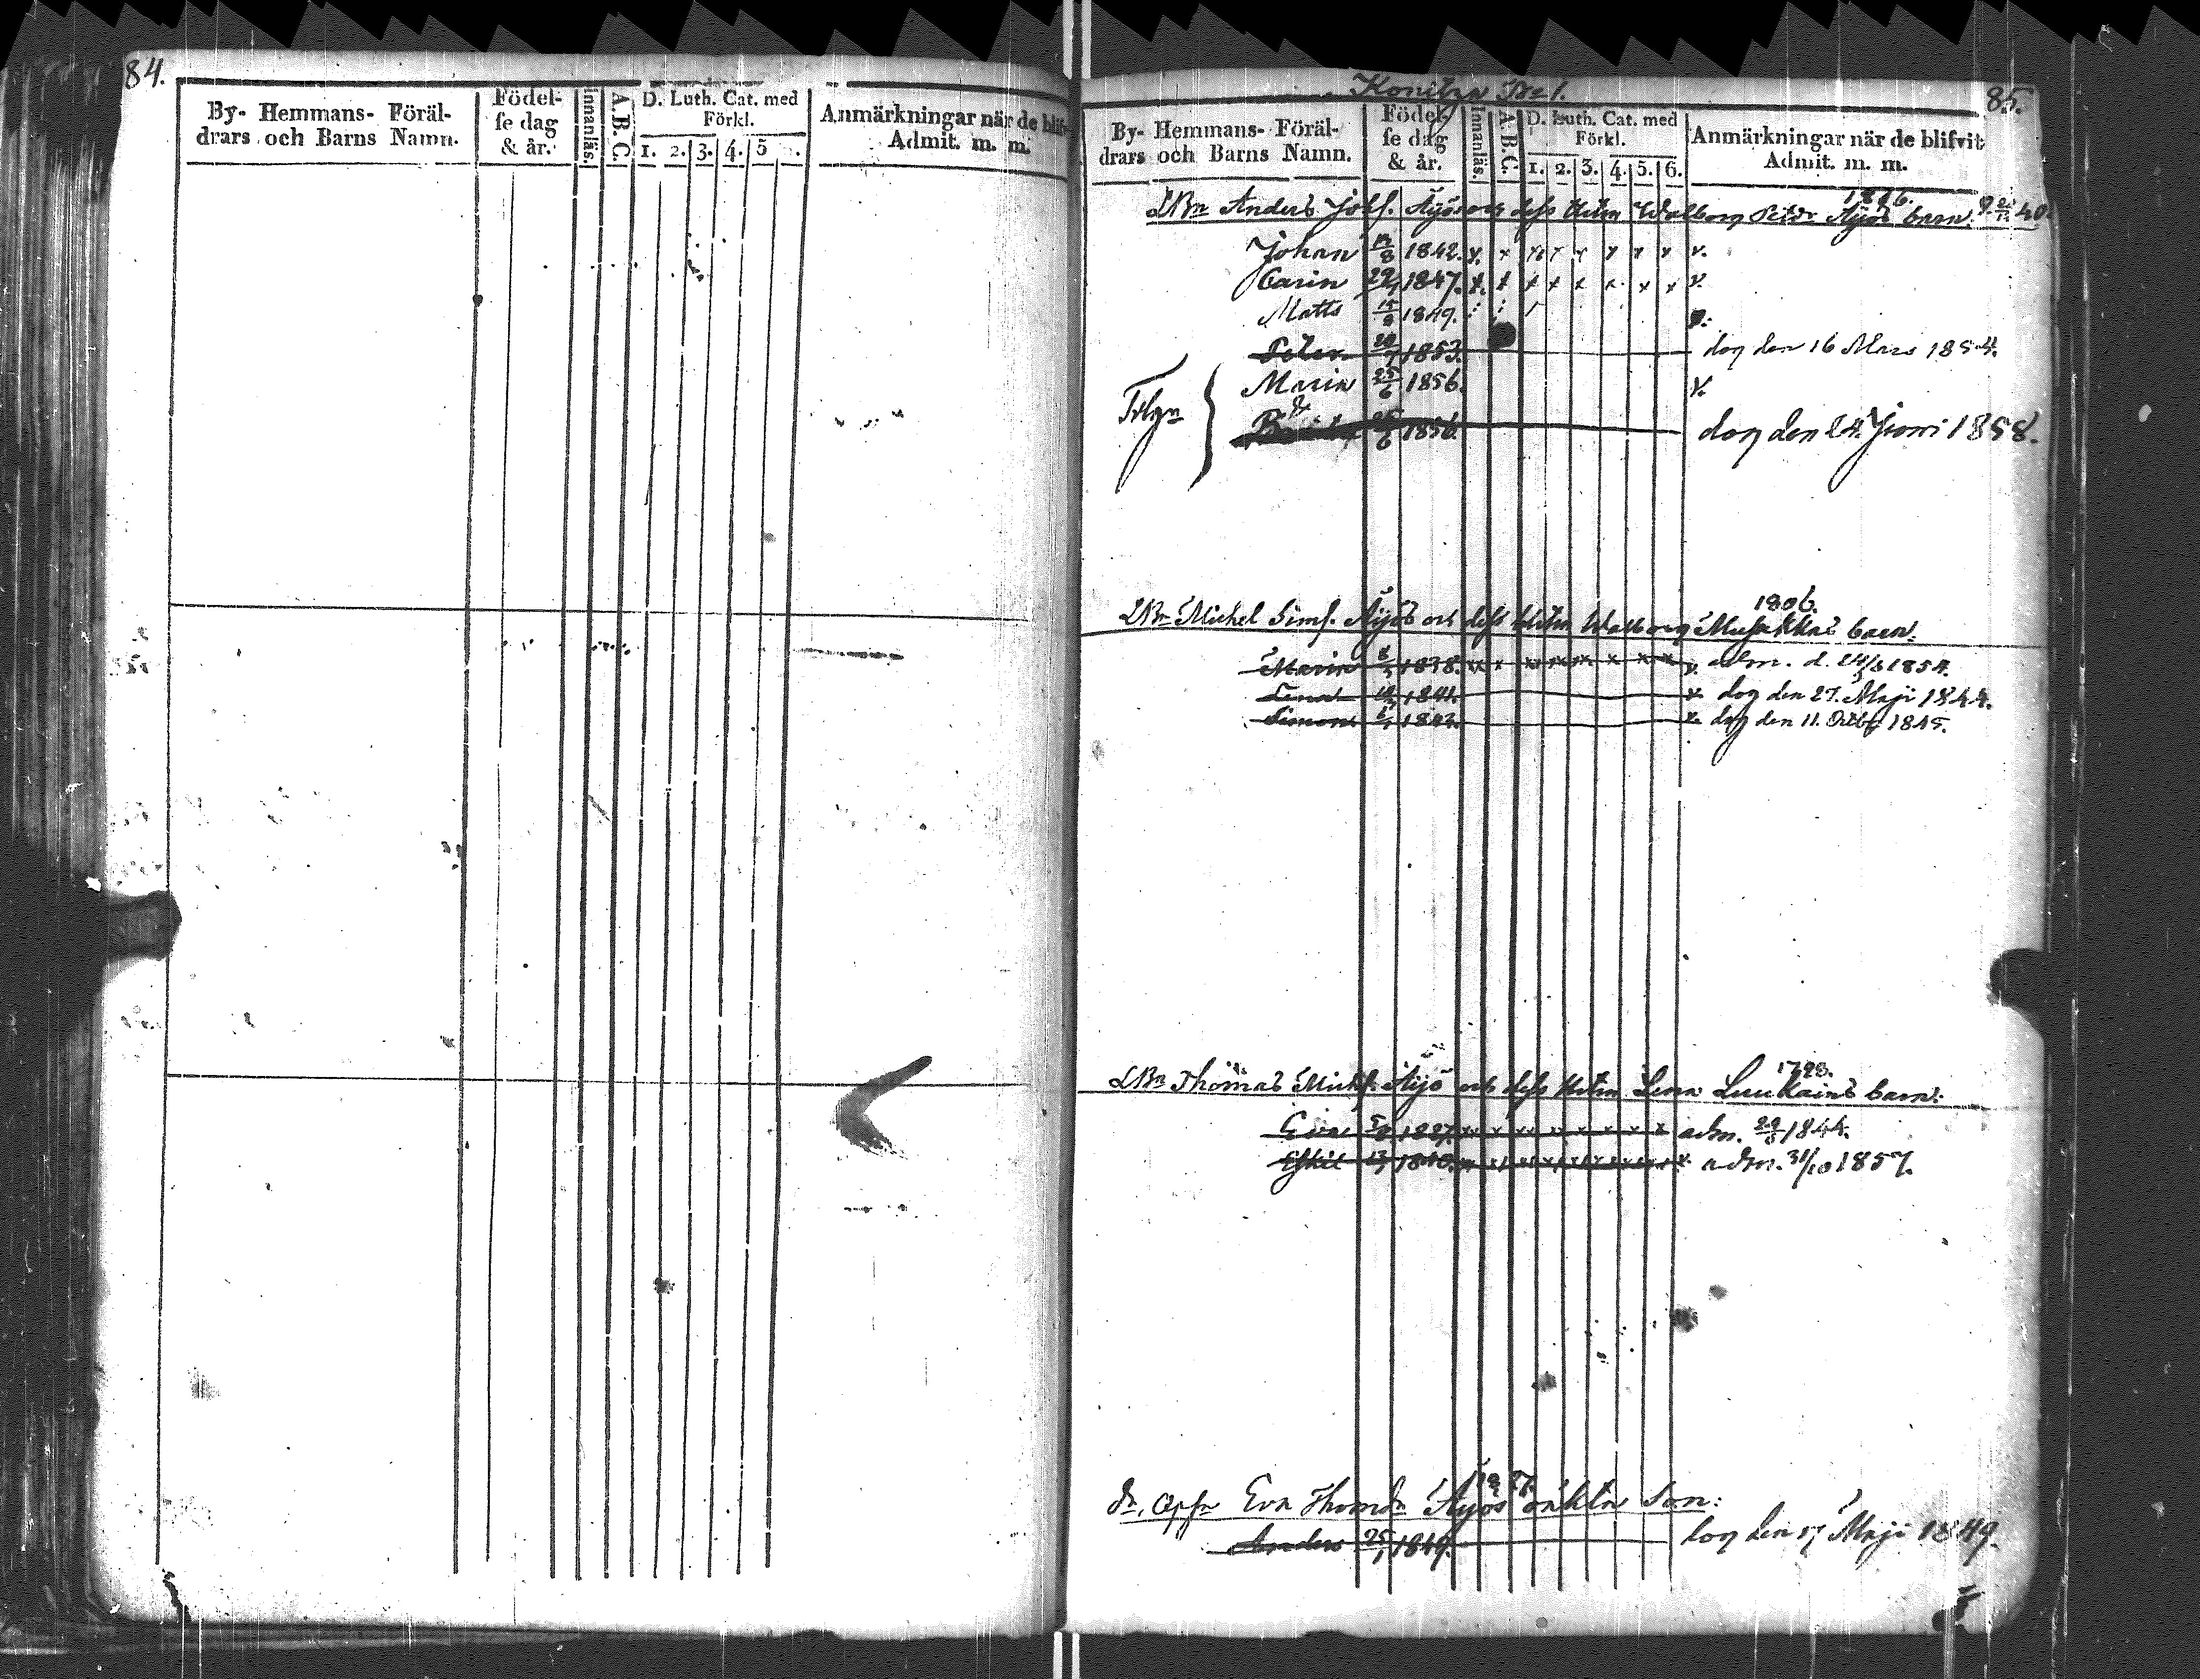 84.
By- Hemmans- Föräl-
drars och Barns Namn.
Födel-
se dag
& år.
innanläs.
A.B.C.
D. Luth. Cat. med
Förkl.
1. 2. 3. 4. 5
Anmärkningar när de blif
Admit. m. m.
85.
By- Hemmans- Föräl-
drars och Barns Namn.
Födel-
se dag
& år.
Innanläs.
A.B.C.
D. Luth. Cat. med
Förkl.
1. 2. 3. 4. 5. 6.
Anmärkningar när de blifvit
Admit. m. m.
1816.
LBn Anders Johs. Äyös och dess Hstru Walborg Petr Äyös barn.
Johan 1842. x. x x x x x x x x.
Carin 29 1847. x. x x x x x x x x.
Matts 15/8 1849.
Peter 1853. dog den 16 Mars 1854.
Tvlgn
Maria 25/6 1856.
Brita 25/6 1856. dog den 24. Juni 1858.
1806.
LBn Michel Sims. Äyös och dess Hstru Walborg Musakkas barn.
Maria 1838. adm. d. 24/6 1854.
Lena 1841. dog den 27. Maji 1844.
Simon 1843. dog den 11. Octbr 1845.
1798.
LBn Thomas Michs. Äyö och dess Hstru Lena Luukains barn:
Eva 1827. x x x x x x x x adm. 29/6 1844.
Eskil 1840. adm. 31/10 1857.
dr, Eva Thomdr Äyös oäkta Son:
Anders 25/1 1849. dog den 17 Maji 1849.